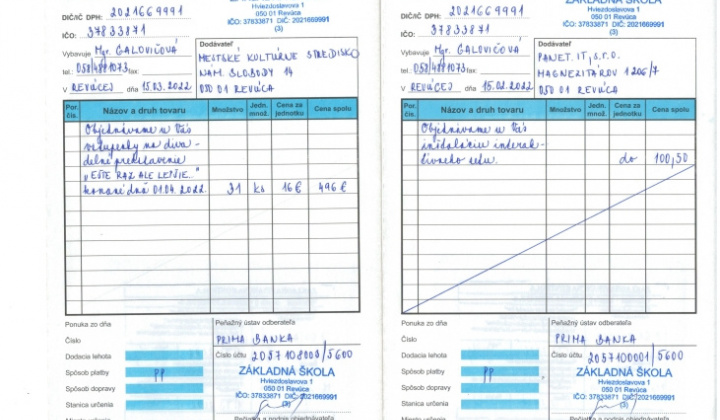 ZÁKLADNÁ ŠKOLA
Hviezdoslavova 1
050 01 Revúca
IČO: 37833871 DIČ: 2021669991
(3)
DIČ/IČ DPH: 2021669991
IČO: 37833871
Vybavuje Mgr. GALOVIČOVÁ
tel.: 058/4881073 fax
V REVÚCEJ dňa 15.03.2022
Dodávateľ
MESTSKÉ KULTÚRNE STREDISKO
NÁM. SLOBODY 14
050 01 REVÚCA
Por. čís. Názov a druh tovaru Množstvo Jedn. množ. Cena za jednotku Cena spolu
Objednávame u Vás
vstupenky na diva-
delné predstavenie
"EŠTE RAZ ALE LEPŠIE.."
konané dňa 01.04.2022. 31 ks 16 € 496 €
Ponuka zo dňa
Číslo
Dodacia lehota
Spôsob platby PP
Spôsob dopravy
Stanica určenia
Peňažný ústav odberateľa
PRIMA BANKA
Číslo účtu /5600
ZÁKLADNÁ ŠKOLA
Hviezdoslavova 1
050 01 Revúca
IČO: 37833871 DIČ: 2021669991
(3)
ZÁKLADNÁ ŠKOLA
Hviezdoslavova 1
050 01 Revúca
IČO: 37833871 DIČ: 2021669991
(3)
DIČ/IČ DPH: 2021669991
IČO: 37833871
Vybavuje Mgr. GALOVIČOVÁ
tel.: 058/4881073 fax
V REVÚCEJ dňa 15.02.2022
Dodávateľ
PANET. IT, s.r.o.
MAGNEZITÁROV 1206/7
050 01 REVÚCA
Por. čís. Názov a druh tovaru Množstvo Jedn. množ. Cena za jednotku Cena spolu
Objednávame u Vás
inštaláciu interak-
tívneho setu. do 100,50
Ponuka zo dňa
Číslo
Dodacia lehota
Spôsob platby PP
Spôsob dopravy
Stanica určenia
Peňažný ústav odberateľa
PRIMA BANKA
Číslo účtu 2057100001/5600
ZÁKLADNÁ ŠKOLA
Hviezdoslavova 1
050 01 Revúca
IČO: 37833871 DIČ: 2021669991
(3)